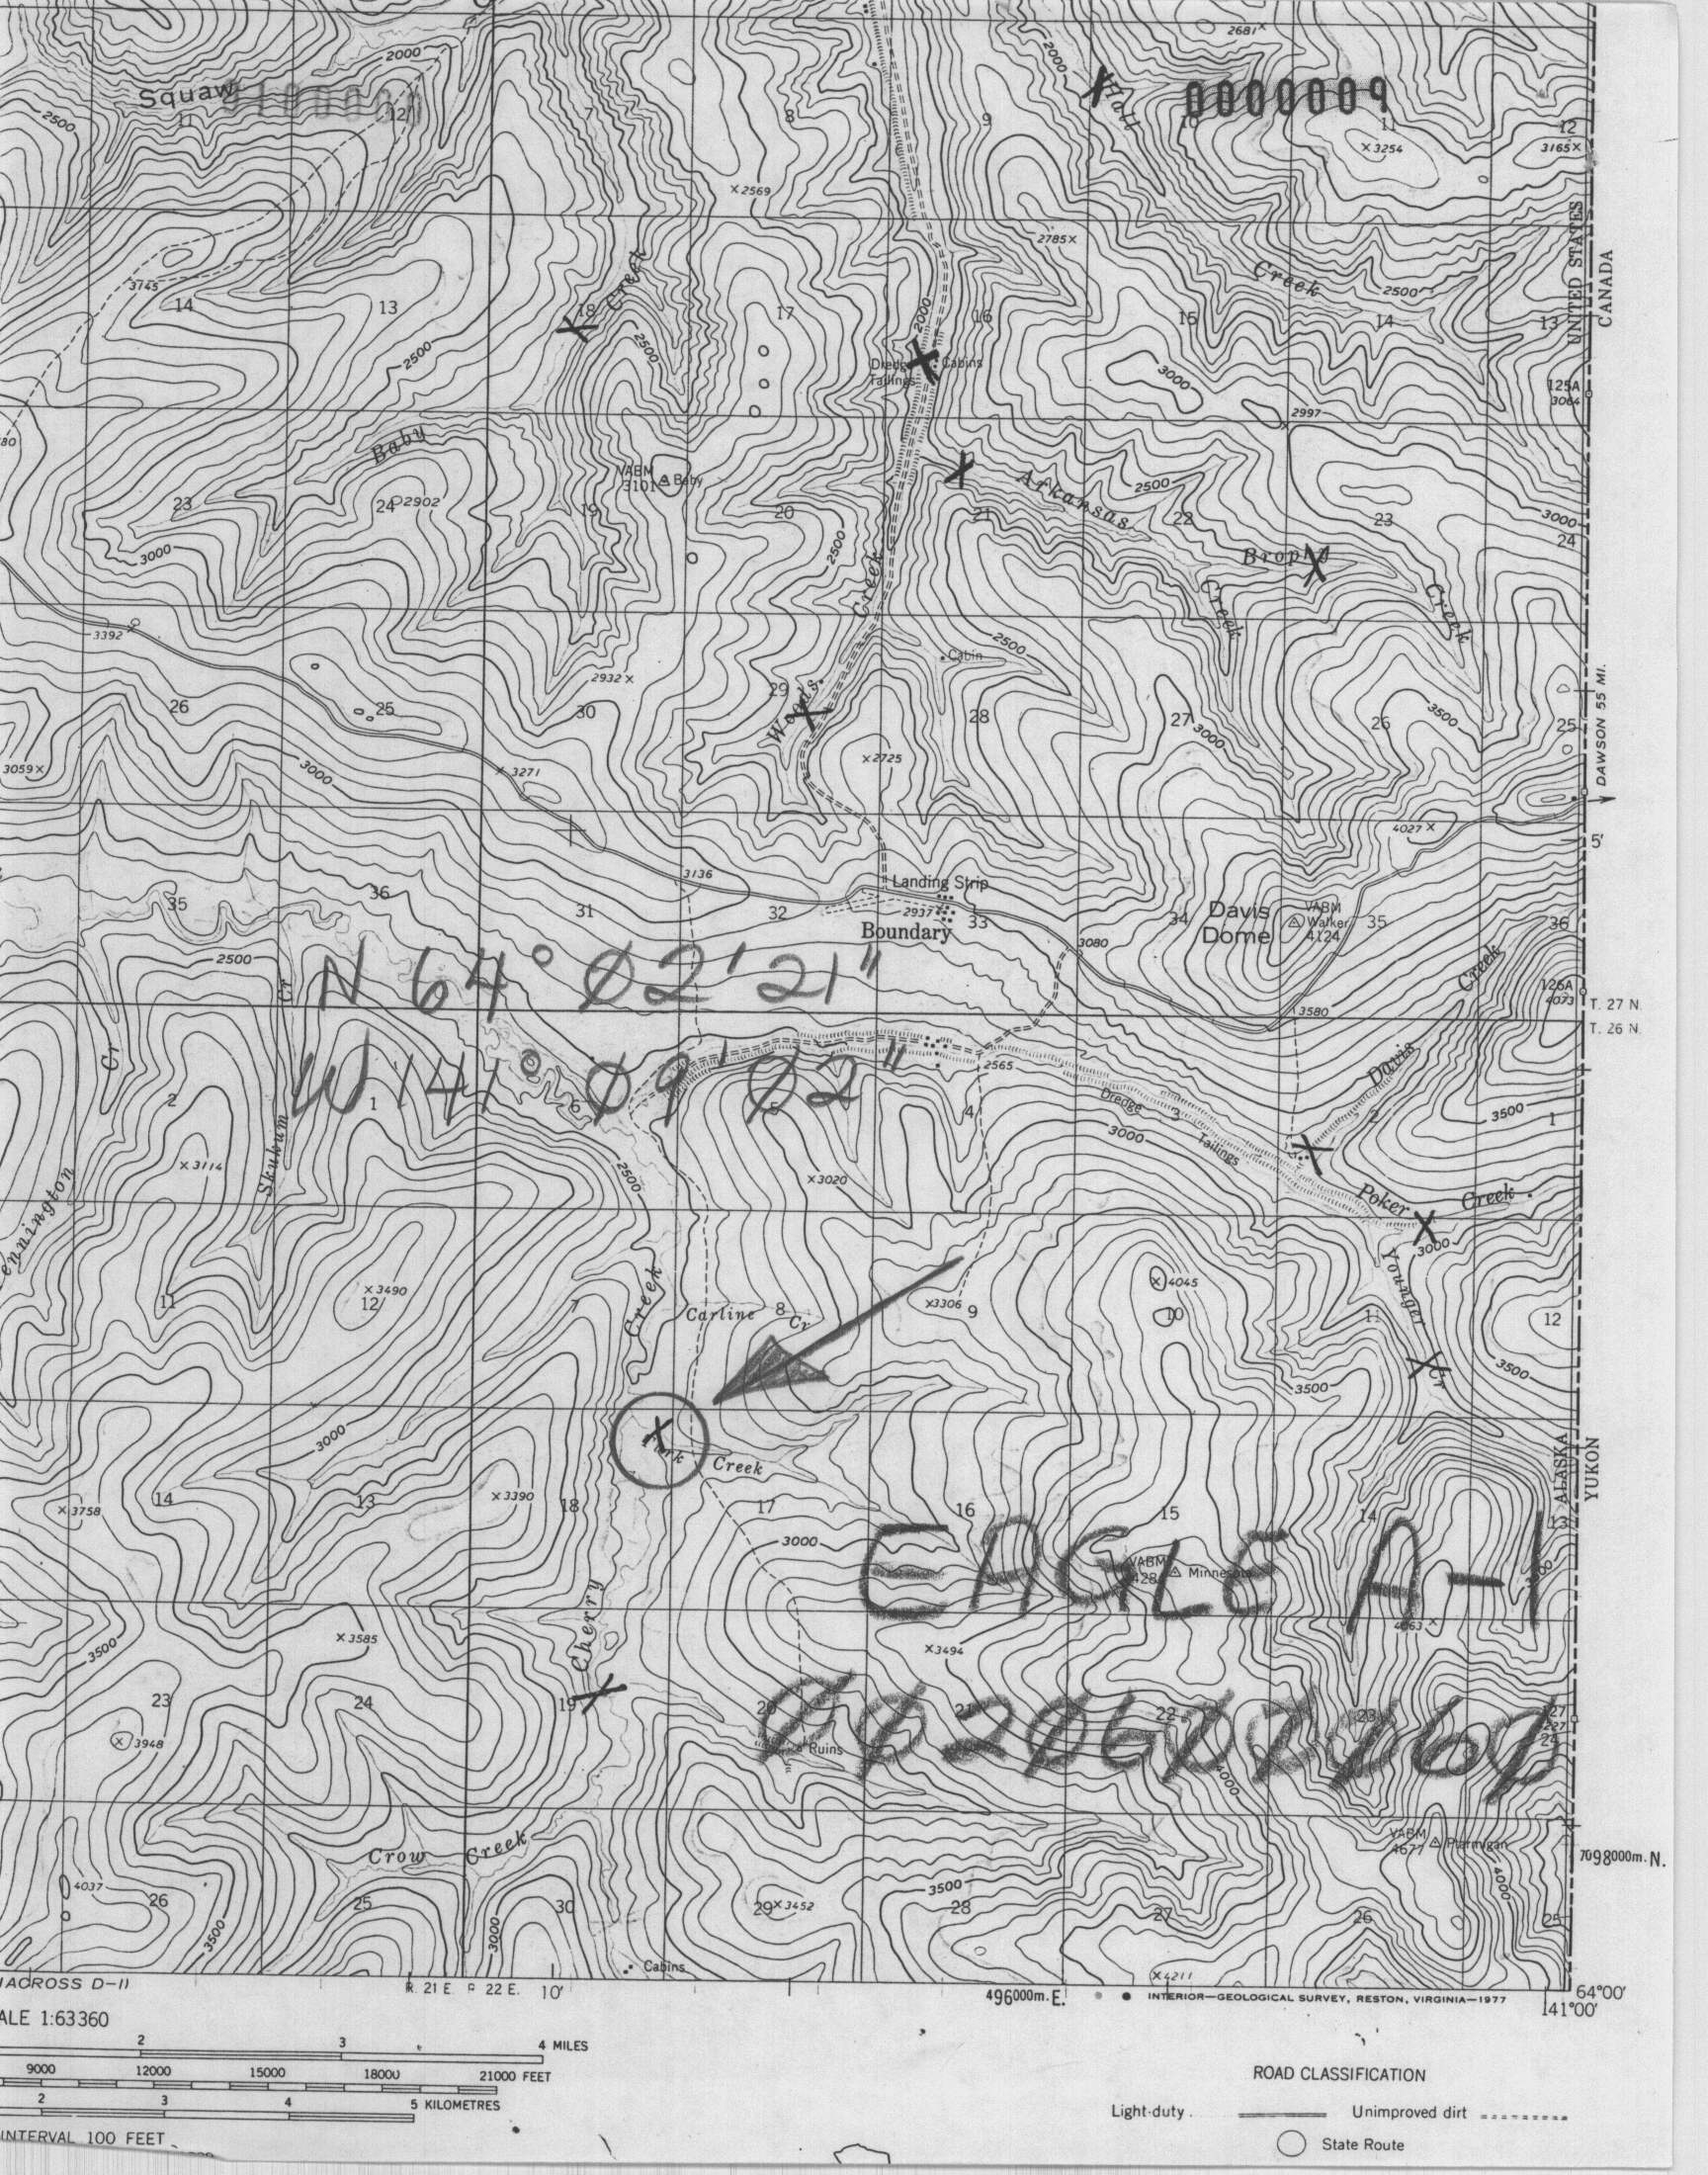 2681
2000
Squaw
2000
Hall
0000009
2500
11
12
7
8
9
10
11
12
3254
3165
2569
2785
UNITED STATES
CANADA
3745
14
13
18
Creek
17
2000
16
15
Creek
2500
14
13
2500
2500
Dredge
Tailings
Cabins
3000
125A
3064
2997
Baby
VABM
3101
Baby
Arkansas
2500
23
24
2902
19
20
21
22
23
3000
24
3000
2500
Creek
Brophy
Creek
Creek
3392
Cabin
2500
2932
29
Woods
26
25
30
28
27
26
3500
25
3000
DAWSON 55 MI.
3059
3000
3271
2725
4027
5'
3136
Landing Strip
35
36
31
32
2937
33
34
Davis
Dome
VABM
Walker
4124
35
36
Boundary
3080
2500
Cr
N 64° 02' 21"
Creek
126A
4073
3580
T. 27 N.
T. 26 N.
Cr
W 141° 09' 02"
2565
Davis
2
1
6
5
4
Dredge
3
Tailings
2
3500
1
3000
Skukum
3114
2500
3020
Poker
Creek
3000
Younger
3490
11
12
7
Creek
Carline
8
Cr
3306
9
4045
10
11
12
3500
Cr
3500
3000
ALASKA
YUKON
Fork
Creek
3758
14
13
3390
18
17
16
15
14
13
3000
EAGLE A-1
VABM
Minnesota
Cherry
3585
3500
3494
23
24
19
20
21
22
23
24
3948
Ruins
4000
Crow Creek
VABM
4677
Ptarmigan
7098000m. N.
4037
26
25
30
29
3452
3500
28
27
26
25
4000
3500
3000
Cabins
4211
D-11
R. 21 E.
R 22 E.
10'
496000m. E.
INTERIOR—GEOLOGICAL SURVEY, RESTON, VIRGINIA—1977
64°00'
141°00'
1:63360
2
3
4 MILES
9000
12000
15000
18000
21000 FEET
2
3
4
5 KILOMETRES
INTERVAL 100 FEET
ROAD CLASSIFICATION
Light-duty
Unimproved dirt
State Route